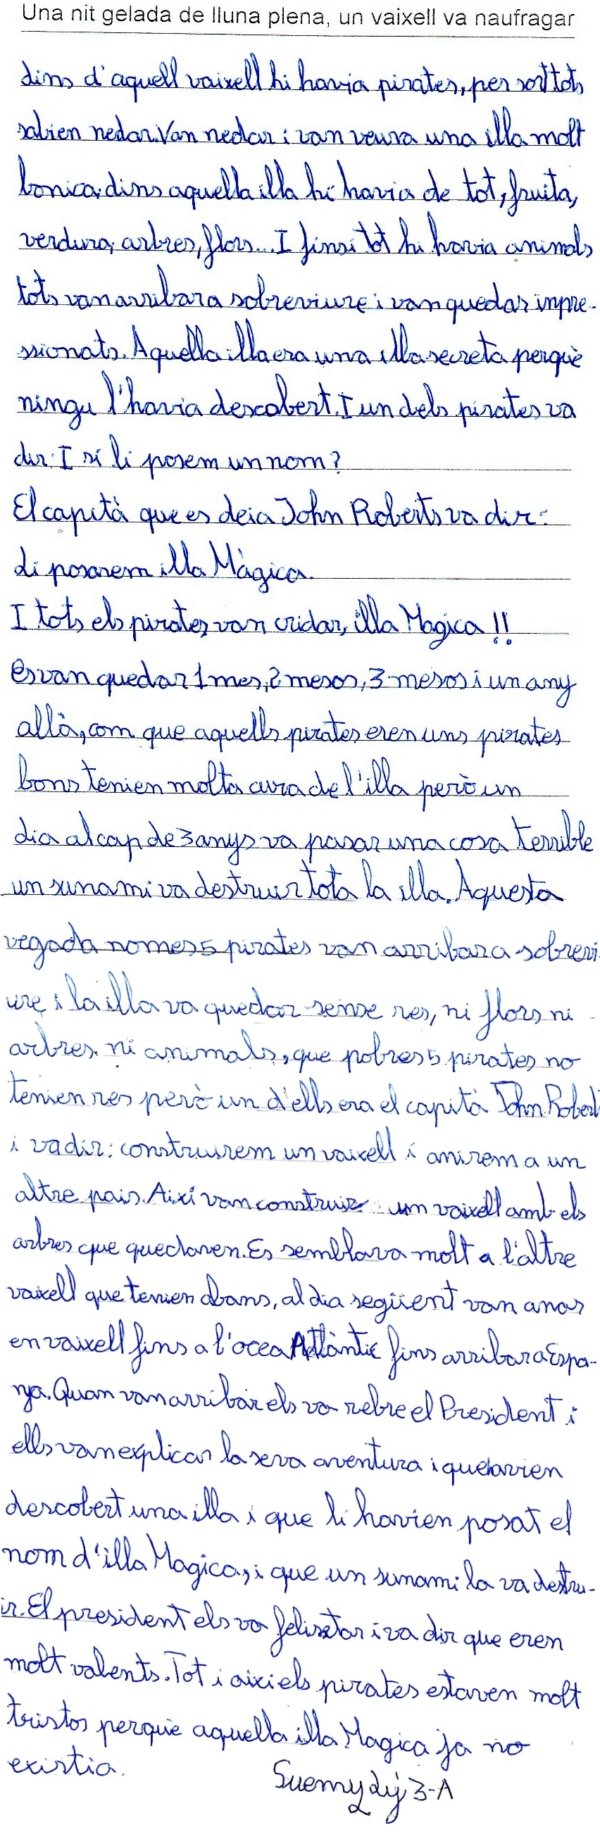 Una nit gelada de lluna plena, un vaixell va naufragar
dins d'aquell vaixell hi havia pirates, per sort tots
sabien nedar. Van nedar i van veura una illa molt
bonica, dins aquella illa hi havia de tot, fruita,
verdura, arbres, flors... I fins i tot hi havia animals
tots van arribar a sobreviure i van quedar impre-
ssionats. Aquella illa era una illa secreta perquè
ningu l'havia descobert. I un dels pirates va
dir: I si li posem un nom?
El capità que es deia John Roberts va dir:
Li posarem illa Màgica.
I tots els pirates van cridar, illa Magica !!
Es van quedar 1 mes, 2 mesos, 3 mesos i un any
allà, com que aquells pirates eren uns pirates
bons tenien molta cura de l'illa però un
dia al cap de 3 anys va pasar una cosa terrible
un sunami va destruir tota la illa. Aquesta
vegada nomes 5 pirates van arribar a sobrevi
ure i la illa va quedar sense res, ni flors ni
arbres ni animals, que pobres 5 pirates no
tenien res però un d'ells era el capità John Robert
i va dir: construirem un vaixell i anirem a un
altre pais. Així van construir un vaixell amb els
arbres que quedaven. Es semblava molt a l'altre
vaixell que tenien abans, al dia següent van anar
en vaixell fins a l'ocea Atlàntic fins arribar a Espa-
nya. Quan van arribar els va rebre el President i
ells van explicar la seva aventura i que avien
descobert una illa i que li havien posat el
nom d'illa Magica, i que un sunami la va destru-
ir. El president els va felisitar i va dir que eren
molt valents. Tot i aixi els pirates estaven molt
tristos perquè aquella illa Magica ja no
existia.
3-A